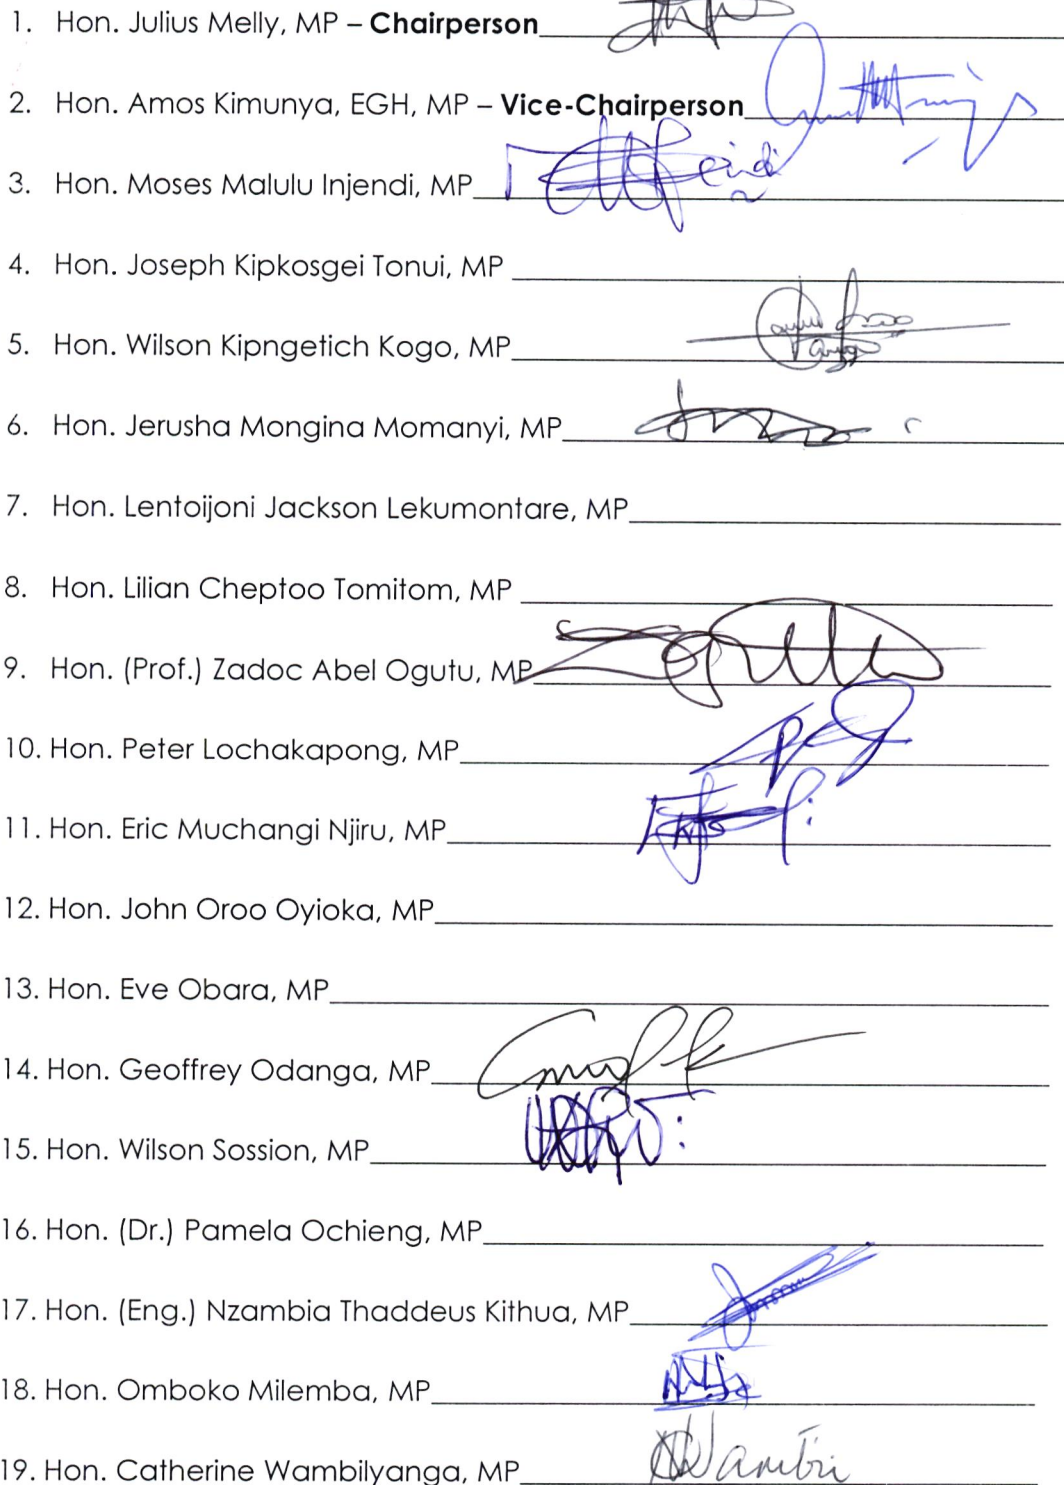 1. Hon. Julius Melly, MP – Chairperson
2. Hon. Amos Kimunya, EGH, MP – Vice-Chairperson
3. Hon. Moses Malulu Injendi, MP
4. Hon. Joseph Kipkosgei Tonui, MP
5. Hon. Wilson Kipngetich Kogo, MP
6. Hon. Jerusha Mongina Momanyi, MP
7. Hon. Lentoijoni Jackson Lekumontare, MP
8. Hon. Lilian Cheptoo Tomitom, MP
9. Hon. (Prof.) Zadoc Abel Ogutu, MP
10. Hon. Peter Lochakapong, MP
11. Hon. Eric Muchangi Njiru, MP
12. Hon. John Oroo Oyioka, MP
13. Hon. Eve Obara, MP
14. Hon. Geoffrey Odanga, MP
15. Hon. Wilson Sossion, MP
16. Hon. (Dr.) Pamela Ochieng, MP
17. Hon. (Eng.) Nzambia Thaddeus Kithua, MP
18. Hon. Omboko Milemba, MP
19. Hon. Catherine Wambilyanga, MP